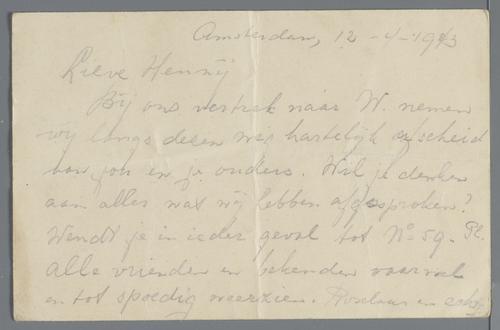 Amsterdam, 12-4-1943
Lieve Hennÿ
Bÿ ons vertrek naar W. nemen
wÿ langs dezen weg hartelÿk afscheid
van jou en je ouders. Wil je denken
aan alles wat wÿ hebben afgesproken?
Wendt je in ieder geval tot No 59. Pl.
Alle vrienden en bekenden vaarwel
en tot spoedig weerzien.